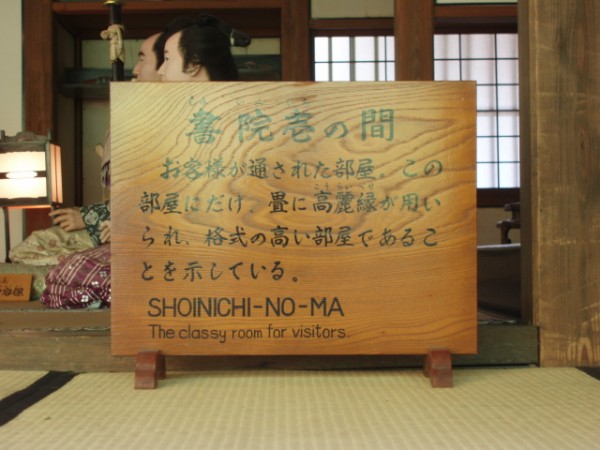 書院壱の間
お客様が通された部屋。この
部屋にだけ、畳に高麗縁が用い
こうらいべり
られ、格式の高い部屋であるこ
とを示している。
SHOINICHI-NO-MA
The classy room for visitors.